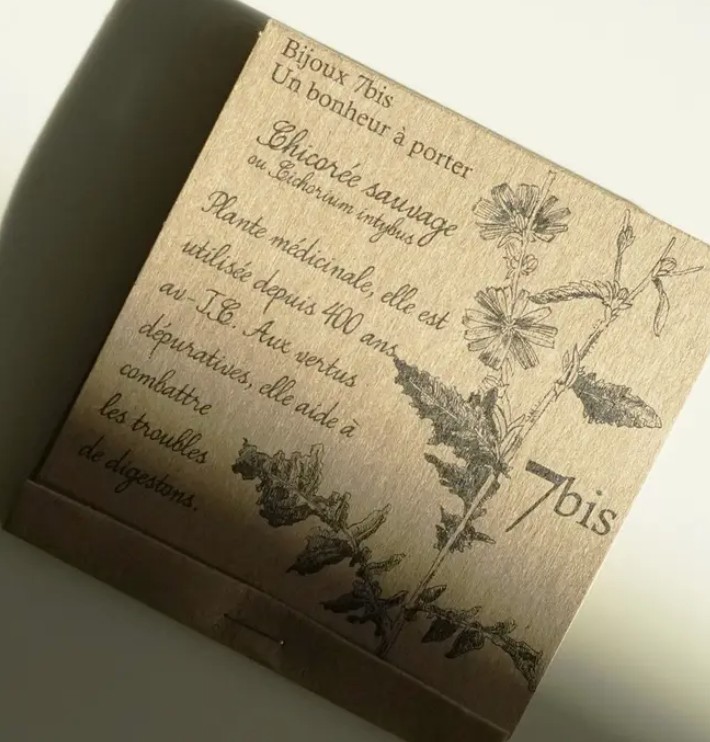 Bijoux 7bis
Un bonheur à porter
Chicorée sauvage
ou Cichorium intybus
Plante médicinale, elle est
utilisée depuis 400 ans
av-J.C. Aux vertus
dépuratives, elle aide à
combattre
les troubles
de digestons.
7bis